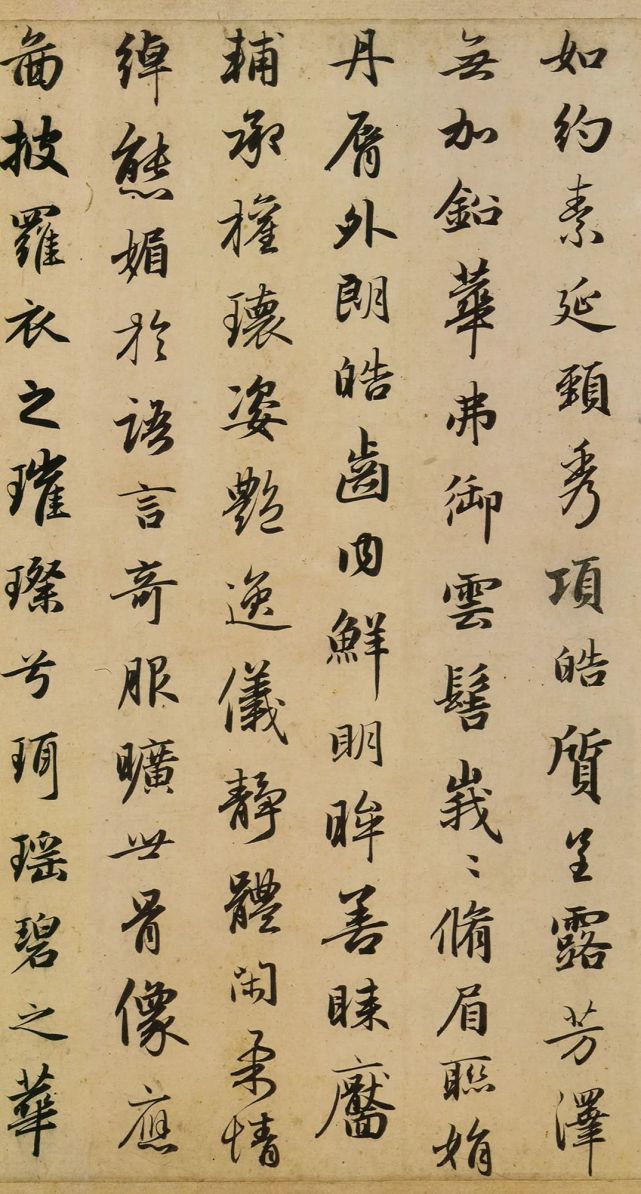 如約素延頸秀項皓質呈露芳澤
無加鉛華弗御雲髻峩〻脩眉聯娟
丹脣外朗皓齒内鮮明眸善睞靨
輔承權瓌姿艶逸儀靜體閑柔情
綽態媚於語言奇服曠世骨像應
啚披羅衣之璀璨兮珥瑶碧之華